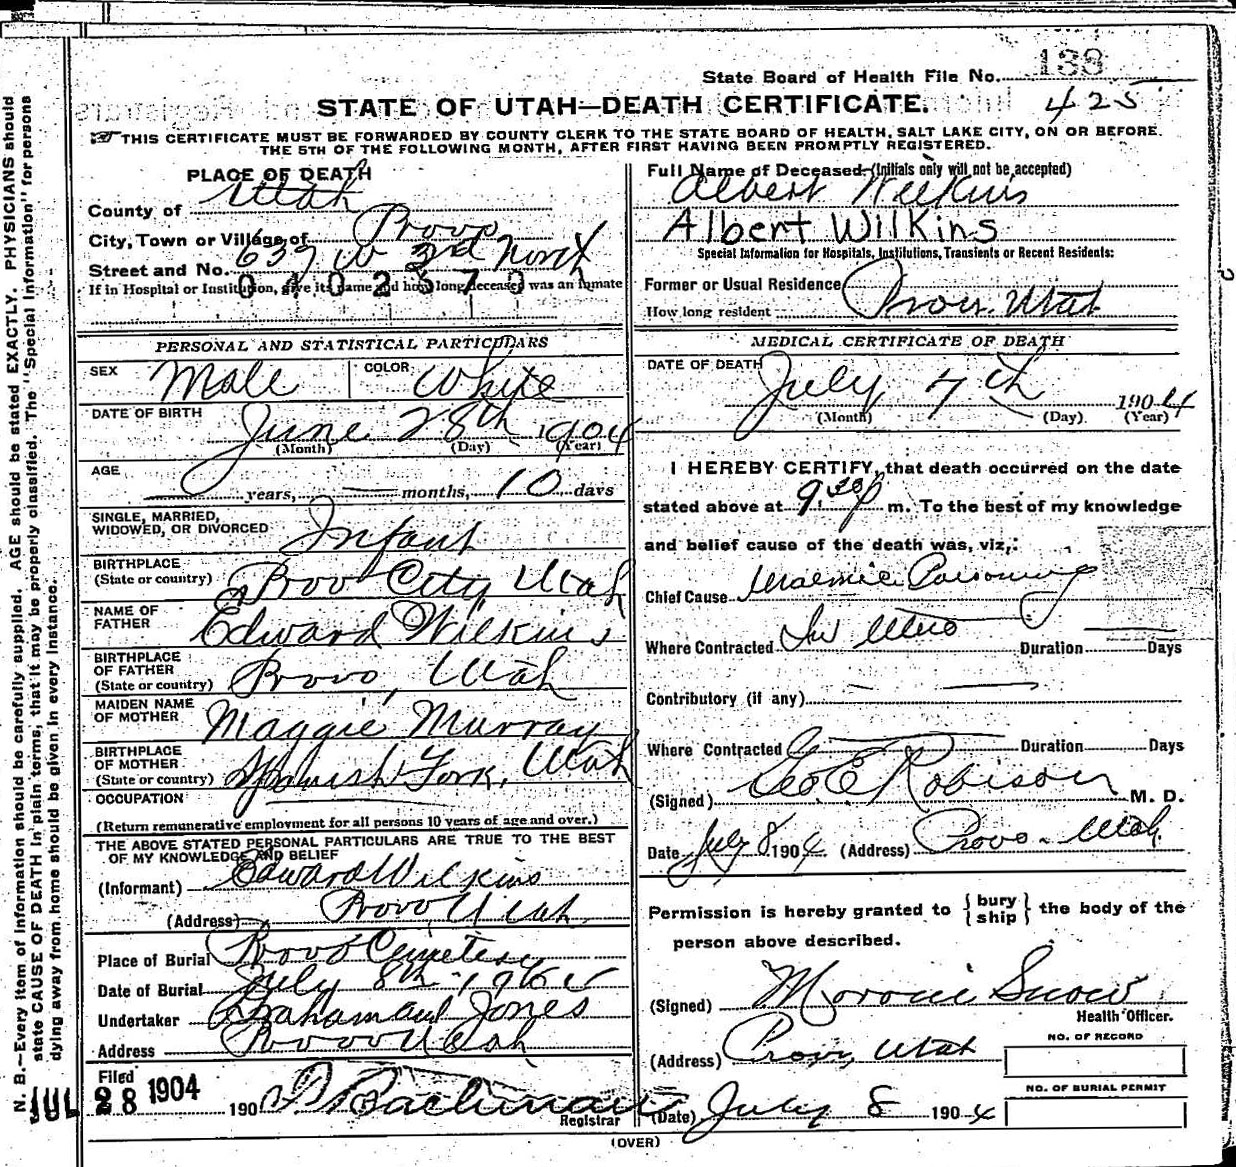 State Board of Health File No. 138
425
STATE OF UTAH—DEATH CERTIFICATE.
THIS CERTIFICATE MUST BE FORWARDED BY COUNTY CLERK TO THE STATE BOARD OF HEALTH, SALT LAKE CITY, ON OR BEFORE
THE 5TH OF THE FOLLOWING MONTH, AFTER FIRST HAVING BEEN PROMPTLY REGISTERED.
PLACE OF DEATH
County of Utah
City, Town or Village of Provo
Street and No. 637 W 3rd North
0402370
If in Hospital or Institution, give its name and how long deceased was an inmate
PERSONAL AND STATISTICAL PARTICULARS
SEX Male COLOR White
DATE OF BIRTH June 28th 1904
(Month) (Day) (Year)
AGE years, months, 10 days
SINGLE, MARRIED,
WIDOWED, OR DIVORCED Infant
BIRTHPLACE
(State or country) Provo City Utah
NAME OF
FATHER Edward Wilkins
BIRTHPLACE
OF FATHER
(State or country) Provo, Utah
MAIDEN NAME
OF MOTHER Maggie Murray
BIRTHPLACE
OF MOTHER
(State or country) Spanish Fork, Utah
OCCUPATION
(Return remunerative employment for all persons 10 years of age and over.)
THE ABOVE STATED PERSONAL PARTICULARS ARE TRUE TO THE BEST
OF MY KNOWLEDGE AND BELIEF
(Informant) Edward Wilkins
(Address) Provo Utah
Place of Burial Provo Cemetery
Date of Burial July 8th, 1904
Undertaker Graham and Jones
Address Provo Utah
Filed
JUL 28 1904 190
Bachman
Registrar
Full Name of Deceased (Initials only will not be accepted)
Albert Wilkins
Albert Wilkins
Special Information for Hospitals, Institutions, Transients or Recent Residents:
Former or Usual Residence
How long resident Provo Utah
MEDICAL CERTIFICATE OF DEATH
DATE OF DEATH July 7th 1904
(Month) (Day) (Year)
I HEREBY CERTIFY, that death occurred on the date
stated above at 9:30 p m. To the best of my knowledge
and belief cause of the death was, viz,:
Chief Cause Uraemic Poisoning
Where Contracted In Utero Duration Days
Contributory (if any)
Where Contracted Duration Days
(Signed) Geo E Robison M. D.
Date July 8 1904 (Address) Provo - Utah
Permission is hereby granted to {bury
ship} the body of the
person above described.
(Signed) Moroni Snow
Health Officer.
(Address) Provo, Utah
NO. OF RECORD
NO. OF BURIAL PERMIT
(Date) July 8 1904
(OVER)
N. B.—Every item of information should be carefully supplied. AGE should be stated EXACTLY. PHYSICIANS should
state CAUSE OF DEATH in plain terms, that it may be properly classified. The "Special Information" for persons
dying away from home should be given in every instance.